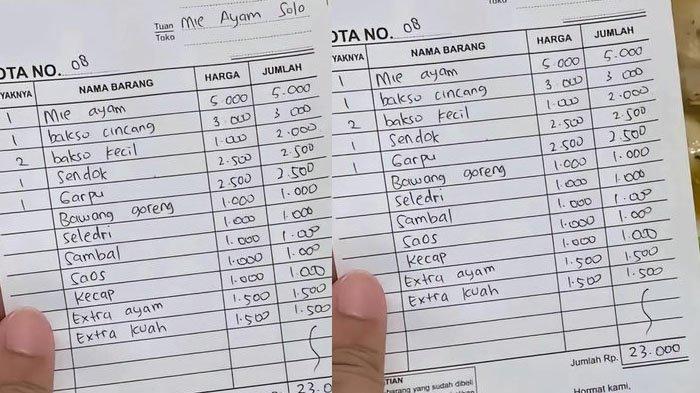 Tuan
Toko Mie Ayam Solo
OTA NO. 08
YAKNYA NAMA BARANG HARGA JUMLAH
1 Mie ayam 5.000 5.000
1 bakso cincang 3.000 3 000
2 bakso kecil 1.000 2.000
1 Sendok 2.500 2.500
1 Garpu 2.500 2.500
Bawang goreng 1.000 1.000
seledri 1.000 1.000
Sambal 1.000 1.000
Saos 1.000 1.000
Kecap 1.000 1.000
Extra ayam 1.500 1.500
Extra kuah 1.500 1.500
23.0
Toko
OTA NO. 08
YAKNYA NAMA BARANG HARGA JUMLAH
1 Mie ayam 5.000 5.000
1 bakso cincang 3.000 3 000
2 bakso kecil 1.000 2.000
1 Sendok 2.500 2.500
1 Garpu 2.500 2.500
Bawang goreng 1.000 1.000
Seledri 1.000 1.000
Sambal 1.000 1.000
Saos 1.000 1.000
Kecap 1.000 1.000
Extra ayam 1.500 1.500
Extra kuah 1.500 1.500
Jumlah Rp. 23.000
TIAN
barang yang sudah dibeli
Hormat kami,